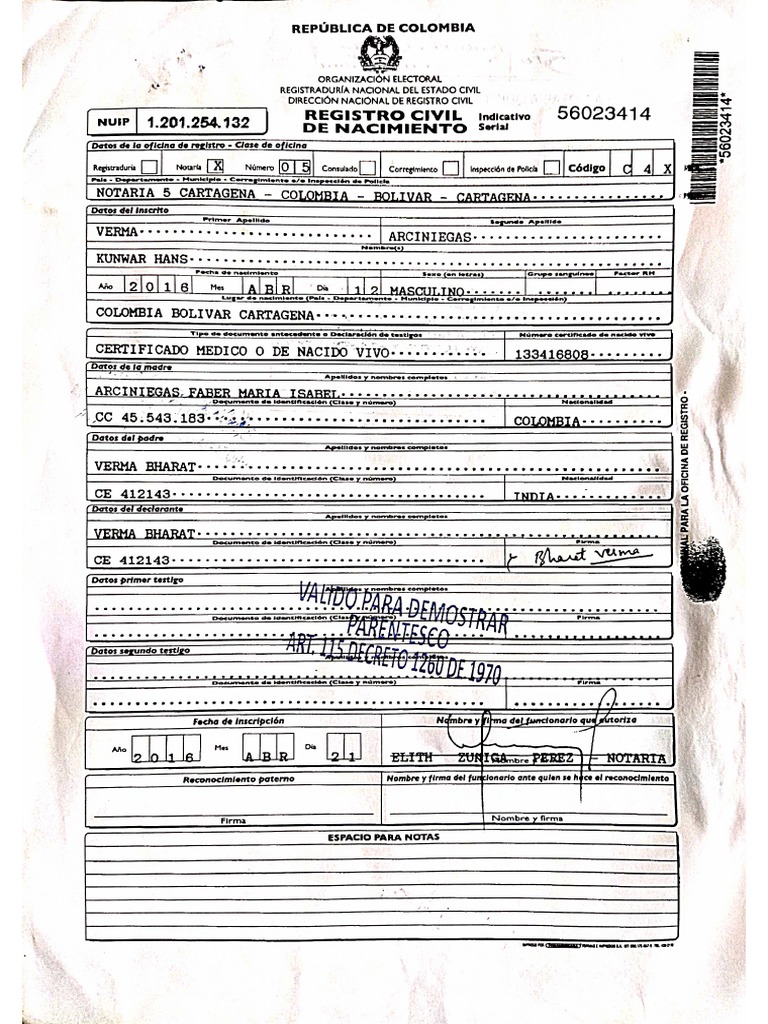 REPÚBLICA DE COLOMBIA
ORGANIZACIÓN ELECTORAL
REGISTRADURÍA NACIONAL DEL ESTADO CIVIL
DIRECCIÓN NACIONAL DE REGISTRO CIVIL
NUIP 1.201.254.132
REGISTRO CIVIL DE NACIMIENTO
Indicativo Serial 56023414
*56023414*
Datos de la oficina de registro - Clase de oficina
Registraduría Notaría X Número 0 5 Consulado Corregimiento Inspección de Policía Código C 4 X
País - Departamento - Municipio - Corregimiento e/o Inspección de Policía
NOTARIA 5 CARTAGENA - COLOMBIA - BOLIVAR - CARTAGENA
Datos del inscrito
Primer Apellido Segundo Apellido
VERMA ARCINIEGAS
Nombre(s)
KUNWAR HANS
Fecha de nacimiento Sexo (en letras) Grupo sanguíneo Factor RH
Año 2016 Mes ABR Día 12 MASCULINO
Lugar de nacimiento (País - Departamento - Municipio - Corregimiento e/o Inspección)
COLOMBIA BOLIVAR CARTAGENA
Tipo de documento antecedente o Declaración de testigos Número certificado de nacido vivo
CERTIFICADO MEDICO O DE NACIDO VIVO 133416808
Datos de la madre
Apellidos y nombres completos
ARCINIEGAS FABER MARIA ISABEL
Documento de identificación (Clase y número) Nacionalidad
CC 45.543.183 COLOMBIA
Datos del padre
Apellidos y nombres completos
VERMA BHARAT
Documento de identificación (Clase y número) Nacionalidad
CE 412143 INDIA
Datos del declarante
Apellidos y nombres completos
VERMA BHARAT
Documento de identificación (Clase y número) Firma
CE 412143 Bharat Verma
Datos primer testigo
Apellidos y nombres completos
Documento de identificación (Clase y número) Firma
VALIDO PARA DEMOSTRAR
PARENTESCO
ART. 115 DECRETO 1260 DE 1970
Datos segundo testigo
Documento de identificación (Clase y número) Firma
Fecha de inscripción Nombre y firma del funcionario que autoriza
Año 2016 Mes ABR Día 21
ELITH ZUNIGA PEREZ - NOTARIA
Nombre y firma
Reconocimiento paterno Nombre y firma del funcionario ante quien se hace el reconocimiento
Firma Nombre y firma
ESPACIO PARA NOTAS
PARA LA OFICINA DE REGISTRO -